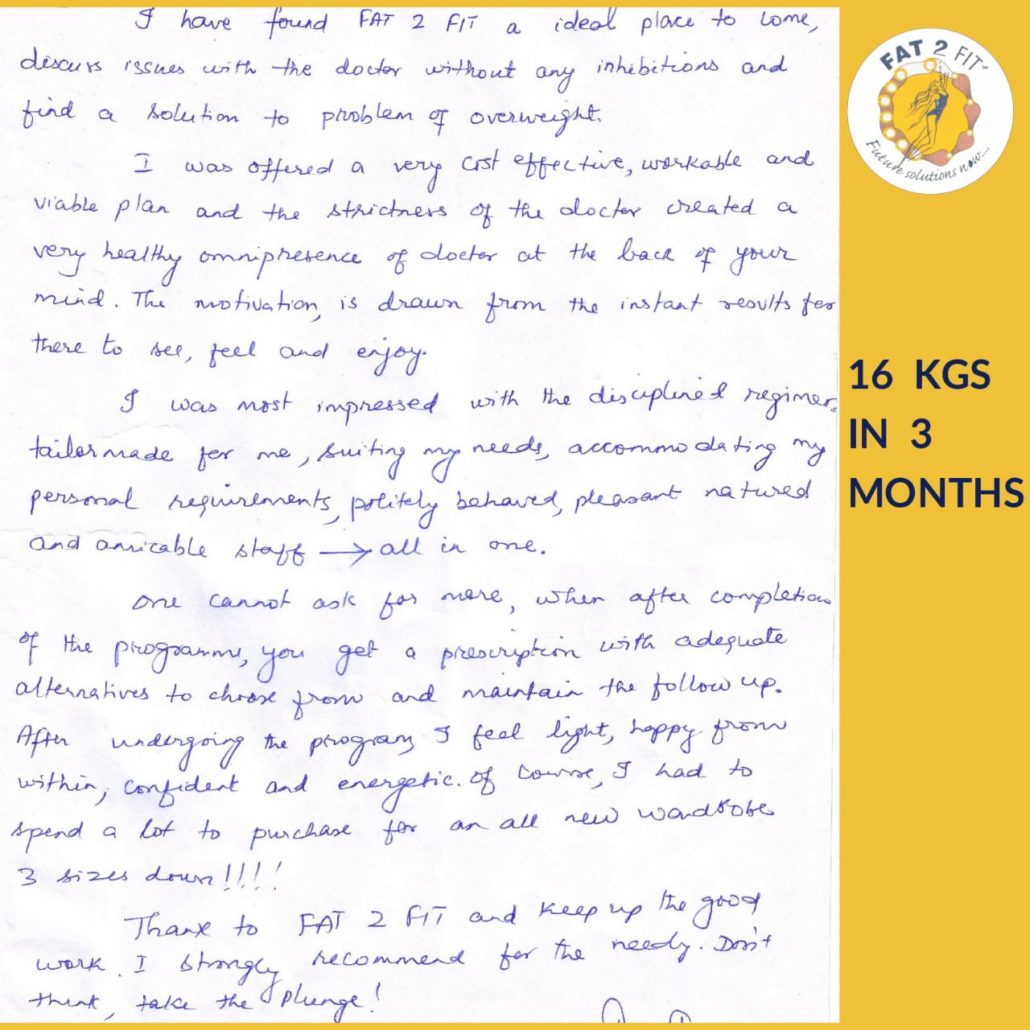 I have found FAT 2 FIT a ideal place to come,
discuss issues with the doctor without any inhibitions and
find a solution to problem of overweight.
I was offered a very cost effective, workable and
viable plan and the strictness of the doctor created a
very healthy omnipresence of doctor at the back of your
mind. The motivation, is drawn from the instant results for
there to see, feel and enjoy.
I was most impressed with the disciplined regimen,
tailormade for me, suiting my needs, accommodating my
personal requirements, politely behaved, pleasant natured
and amicable staff → all in one.
One cannot ask for more, when after completion
of the programme, you get a prescription with adequate
alternatives to choose from and maintain the follow up.
After undergoing the program, I feel light, happy from
within, confident and energetic. Of course, I had to
spend a lot to purchase for an all new wardrobe
3 sizes down!!!!
Thank to FAT 2 FIT and keep up the good
work. I strongly recommend for the needy. Don't
think, take the plunge!
FAT 2 FIT
Future solutions now...
16 KGS
IN 3
MONTHS